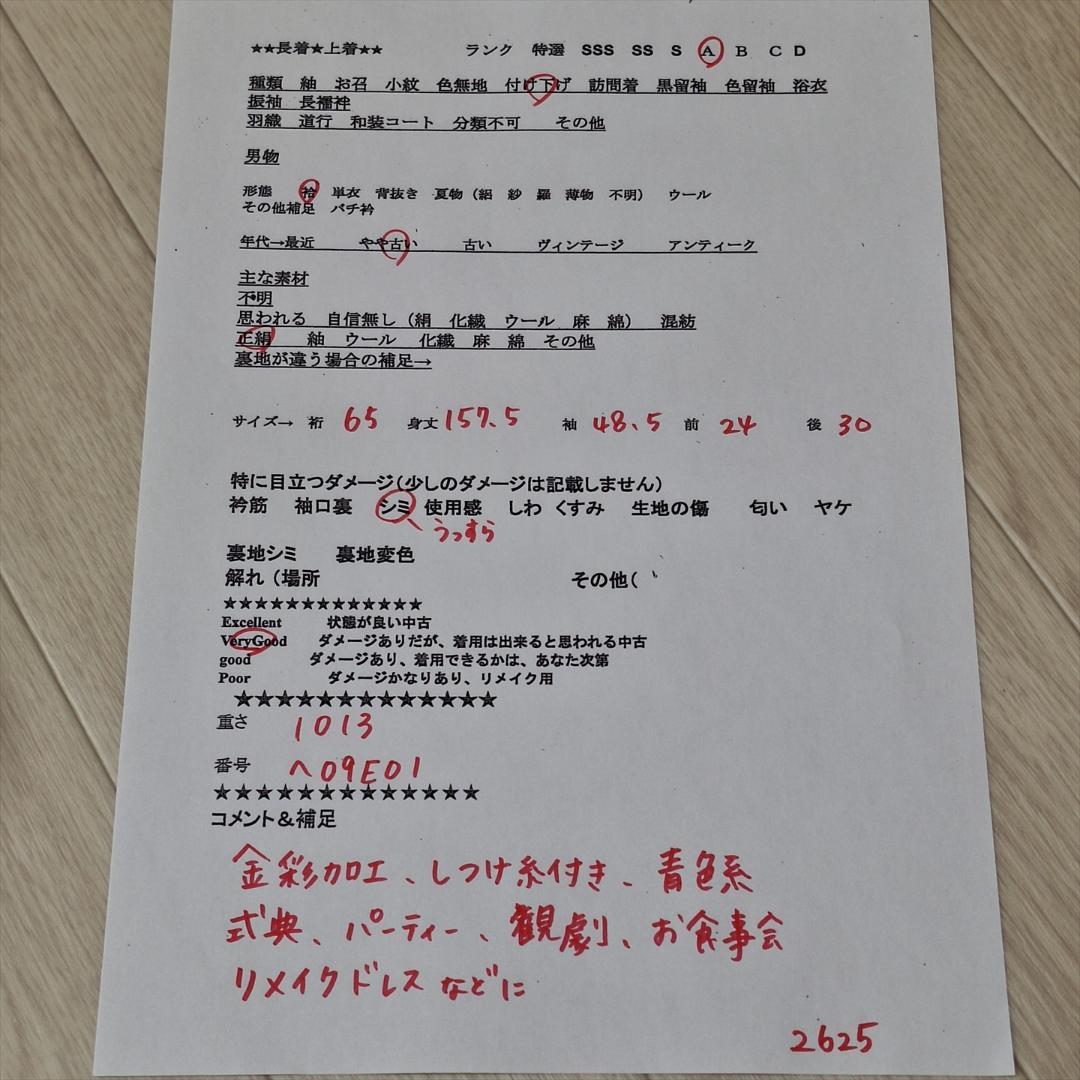 ★★長着★上着★★ ランク 特選 SSS SS S A B C D
種類 紬 お召 小紋 色無地 付け下げ 訪問着 黒留袖 色留袖 浴衣
振袖 長襦袢
羽織 道行 和装コート 分類不可 その他
男物
形態 袷 単衣 背抜き 夏物（絽 紗 羅 薄物 不明） ウール
その他補足 バチ衿
年代→最近 やや古い 古い ヴィンテージ アンティーク
主な素材
不明
思われる 自信無し（絹 化繊 ウール 麻 綿） 混紡
正絹 紬 ウール 化繊 麻 綿 その他
裏地が違う場合の補足→
サイズ→ 裄 65 身丈 157.5 袖 48.5 前 24 後 30
特に目立つダメージ（少しのダメージは記載しません）
衿筋 袖口裏 シミ 使用感 しわ くすみ 生地の傷 匂い ヤケ
うっすら
裏地シミ 裏地変色
解れ（場所 その他（
★★★★★★★★★★★★★
Excellent 状態が良い中古
VeryGood ダメージありだが、着用は出来ると思われる中古
good ダメージあり、着用できるかは、あなた次第
Poor ダメージかなりあり、リメイク用
★★★★★★★★★★★★★
重さ 1013
番号 へ09E01
★★★★★★★★★★★★★
コメント＆補足
金彩加工、しつけ糸付き、青色系
式典、パーティー、観劇、お食事会
リメイクドレスなどに
2625